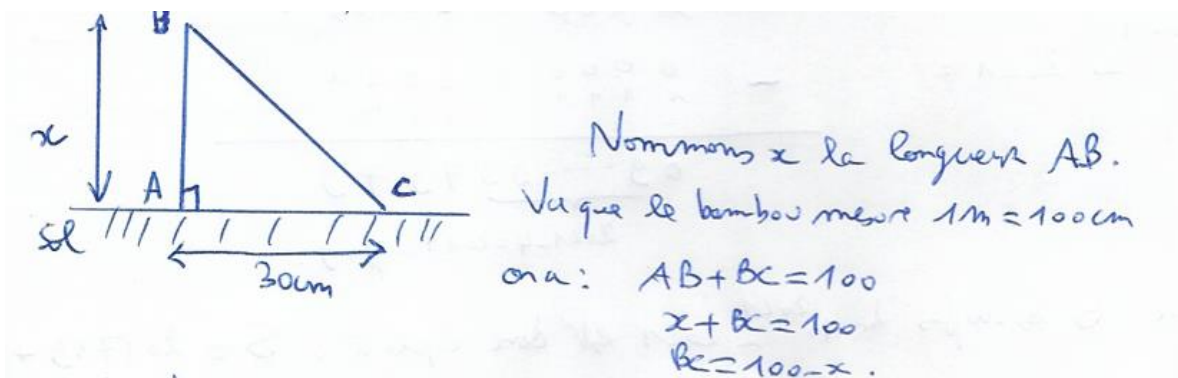 B
x
A
C
sol
30cm
Nommons x la longueur AB.
Vu que le bambou mesure 1m = 100cm
on a : AB + BC = 100
x + BC = 100
BC = 100 - x.